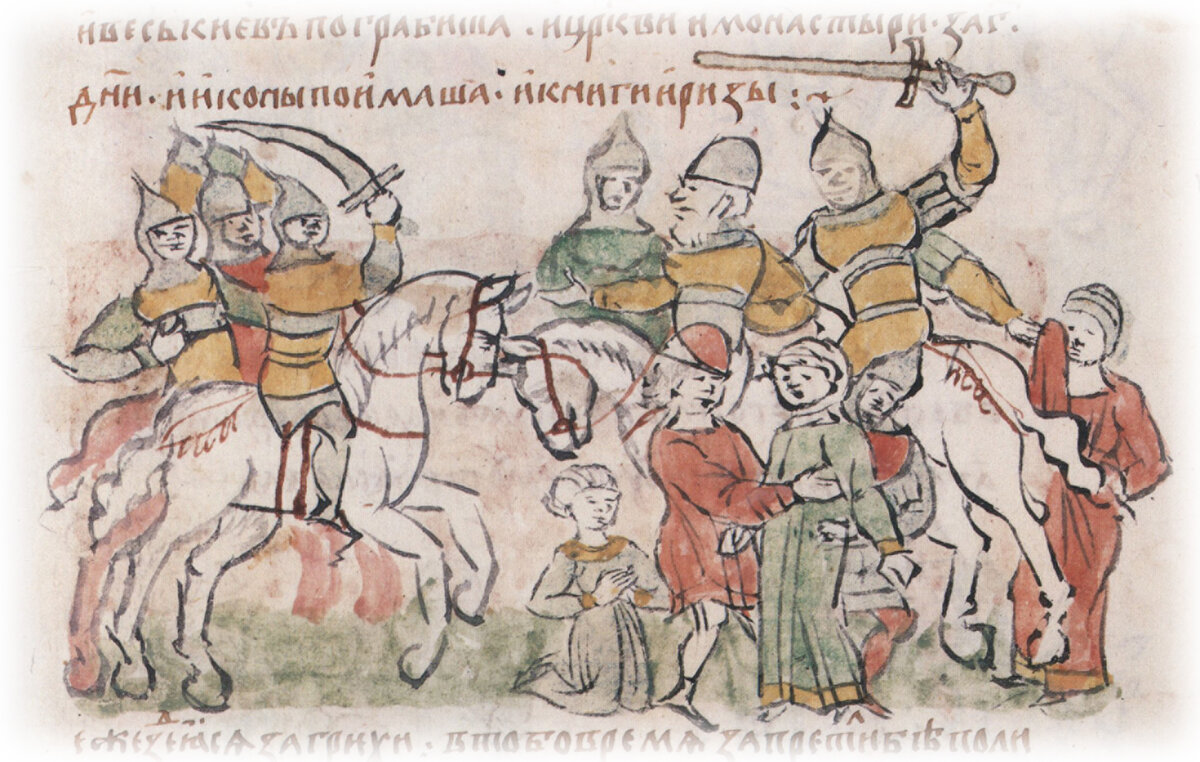 и весь киевъ пограбиша · и цркви и монастыри · за г҃ ·
дни · и иконы поимаша · и книги и ризы :~
еже деюся за грихи · в то бо время запрети бѣ поли